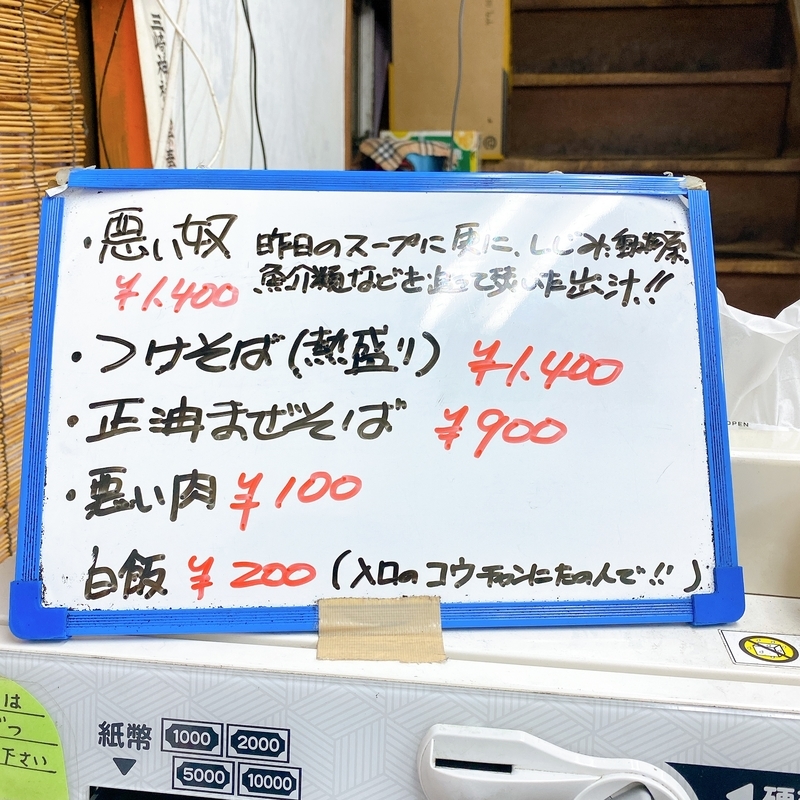 ・悪い奴 昨日のスープに更に、しじみ、
¥1.400 魚介類などを 出汁!!
・つけそば(熱盛り) ¥1.400
・正油まぜそば ¥900
・悪い肉 ¥100
白飯 ¥200 (入口のコウチャンにたのんで!!)
OPEN
は
つ
下さい
紙幣 1000 2000
5000 10000